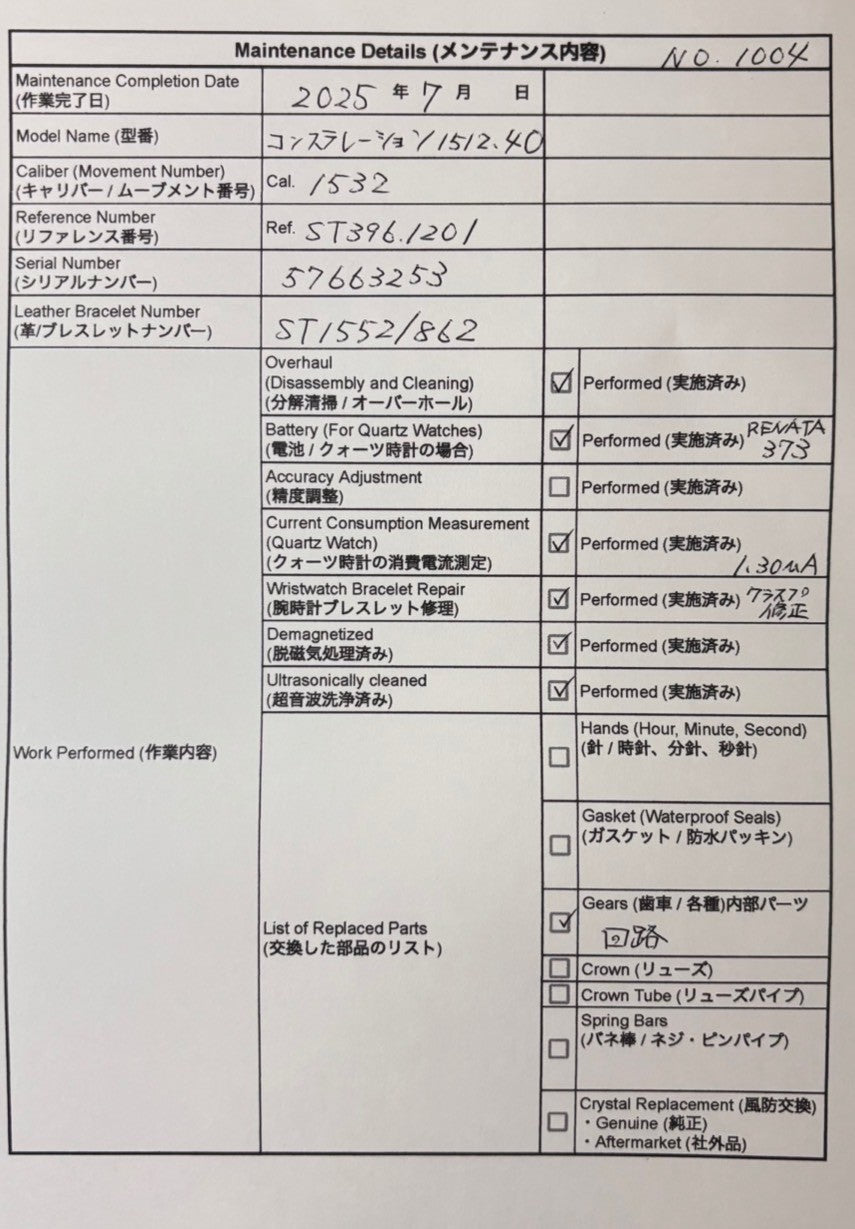 Maintenance Details (メンテナンス内容) NO. 1004
Maintenance Completion Date
(作業完了日)
2025 年 7 月 日
Model Name (型番)
コンステレーション/1512.40
Caliber (Movement Number)
(キャリバー / ムーブメント番号)
Cal. 1532
Reference Number
(リファレンス番号)
Ref. ST396.1201
Serial Number
(シリアルナンバー)
57663253
Leather Bracelet Number
(革/ブレスレットナンバー)
ST1552/862
Work Performed (作業内容)
Overhaul
(Disassembly and Cleaning)
(分解清掃 / オーバーホール)
Performed (実施済み)
Battery (For Quartz Watches)
(電池 / クォーツ時計の場合)
Performed (実施済み) RENATA
373
Accuracy Adjustment
(精度調整)
Performed (実施済み)
Current Consumption Measurement
(Quartz Watch)
(クォーツ時計の消費電流測定)
Performed (実施済み)
1.30uA
Wristwatch Bracelet Repair
(腕時計ブレスレット修理)
Performed (実施済み) クラスプ
修正
Demagnetized
(脱磁気処理済み)
Performed (実施済み)
Ultrasonically cleaned
(超音波洗浄済み)
Performed (実施済み)
List of Replaced Parts
(交換した部品のリスト)
Hands (Hour, Minute, Second)
(針 / 時針、分針、秒針)
Gasket (Waterproof Seals)
(ガスケット / 防水パッキン)
Gears (歯車 / 各種)内部パーツ
回路
Crown (リューズ)
Crown Tube (リューズパイプ)
Spring Bars
(バネ棒 / ネジ・ピンパイプ)
Crystal Replacement (風防交換)
・Genuine (純正)
・Aftermarket (社外品)